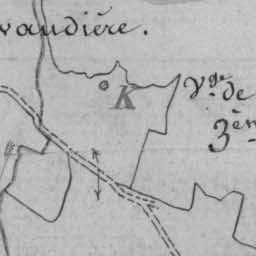 vaudière.
K
Vge de
3èm